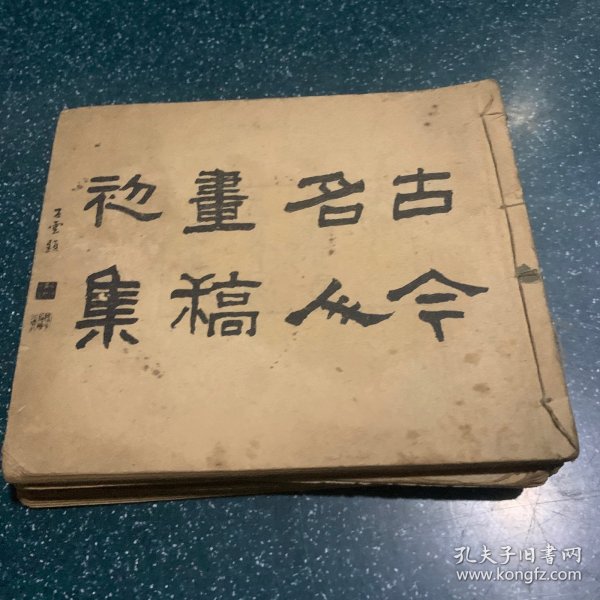 古今
名人
畫稿
初集
孔夫子旧书网
www.kongfz.com